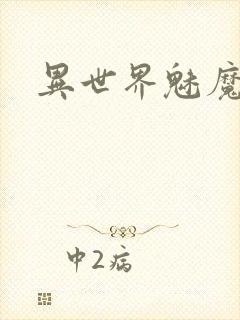 異世界魅魔
中2病